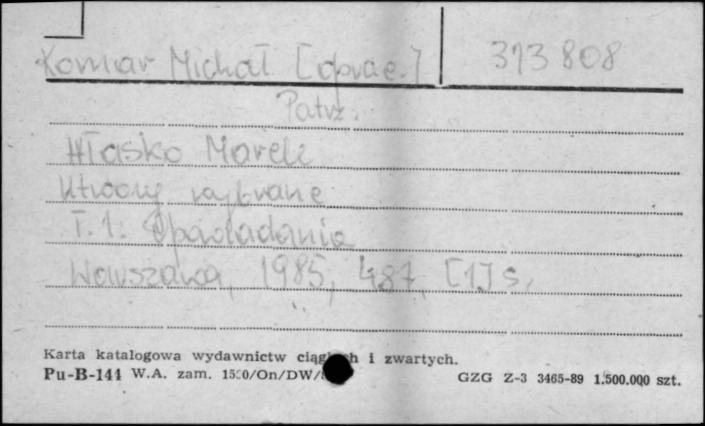 Komar Michał [oprac.] 313 808
Patrz:
Hłasko Marek
Utwory wybrane
T. 1: Opowiadania
Warszawa, 1985, 487, [1] s.
Karta katalogowa wydawnictw i zwartych.
Pu-B-144 W.A. zam. GZG Z-3 3465-89 1.500.000 szt.